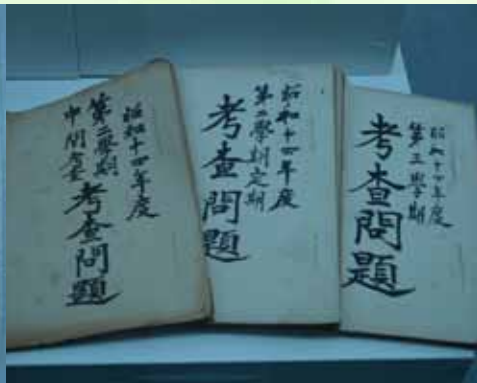 昭和十四年度
第二學期
中間考査
考査問題
昭和十四年度
第二學期定期
考査問題
昭和十四年度
第三學期
考査問題